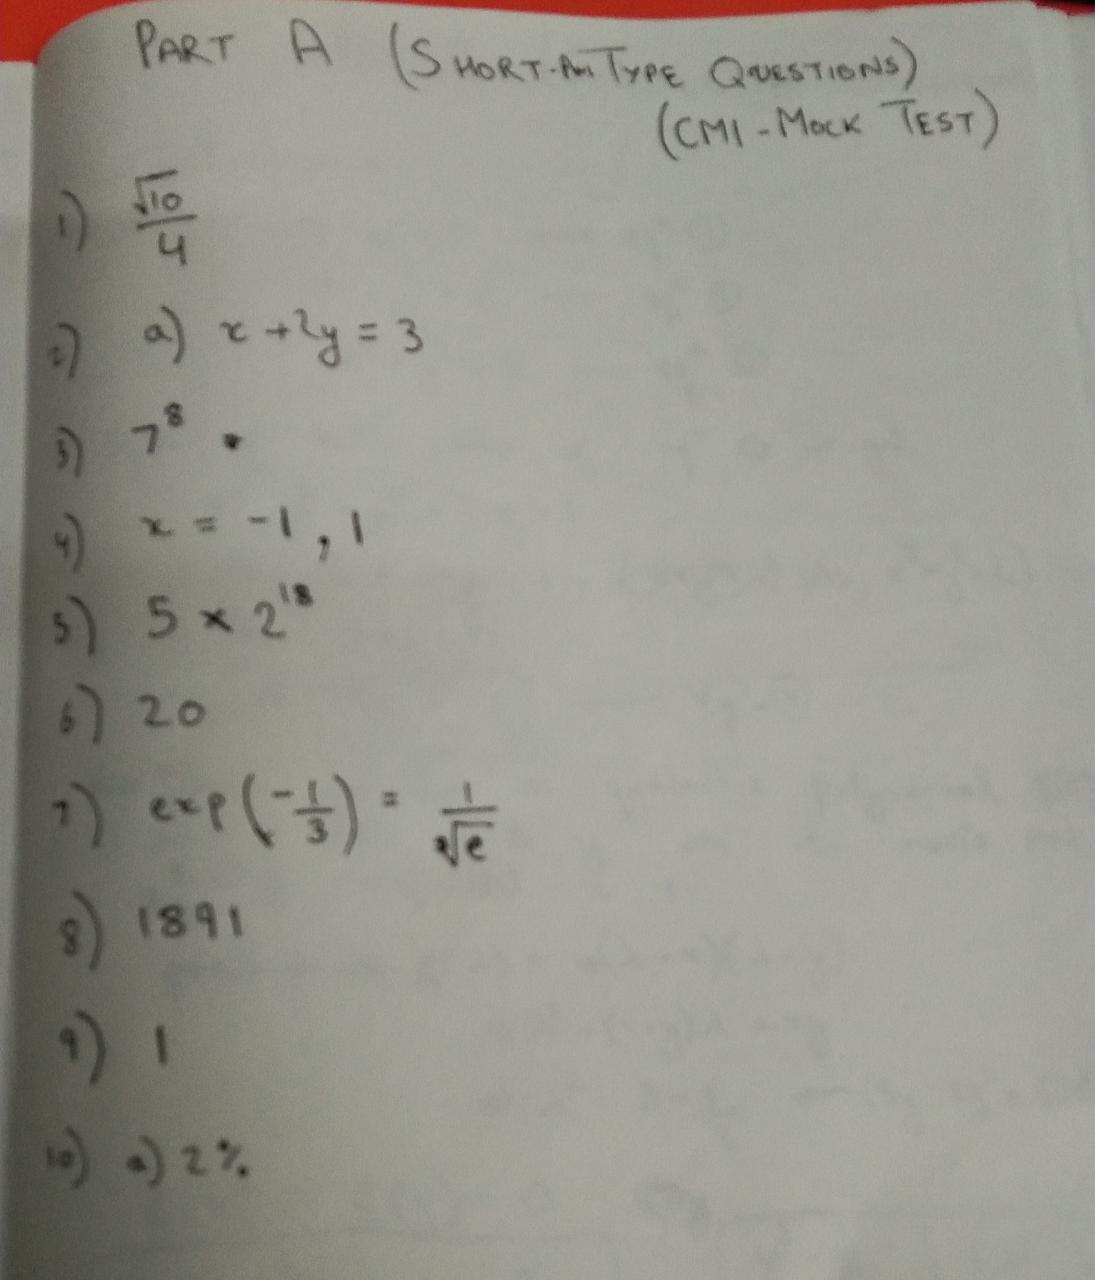 PART A (SHORT-Ans TYPE QUESTIONS)
(CMI - MOCK TEST)
1) √10/4
2) a) x + 2y = 3
3) 7⁸ .
4) x = -1, 1
5) 5 × 2¹⁸
6) 20
7) exp(-1/3) = 1/∛e
8) 1891
9) 1
10) a) 2%